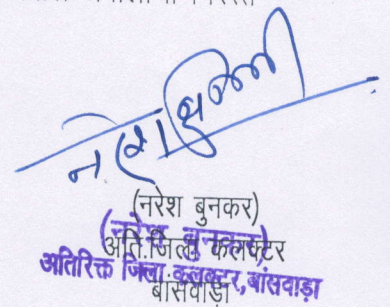 (नरेश बुनकर)
(नरेश बुनकर)
अति.जिला कलक्टर
अतिरिक्त जिला कलक्टर,बांसवाड़ा
बांसवाड़ा